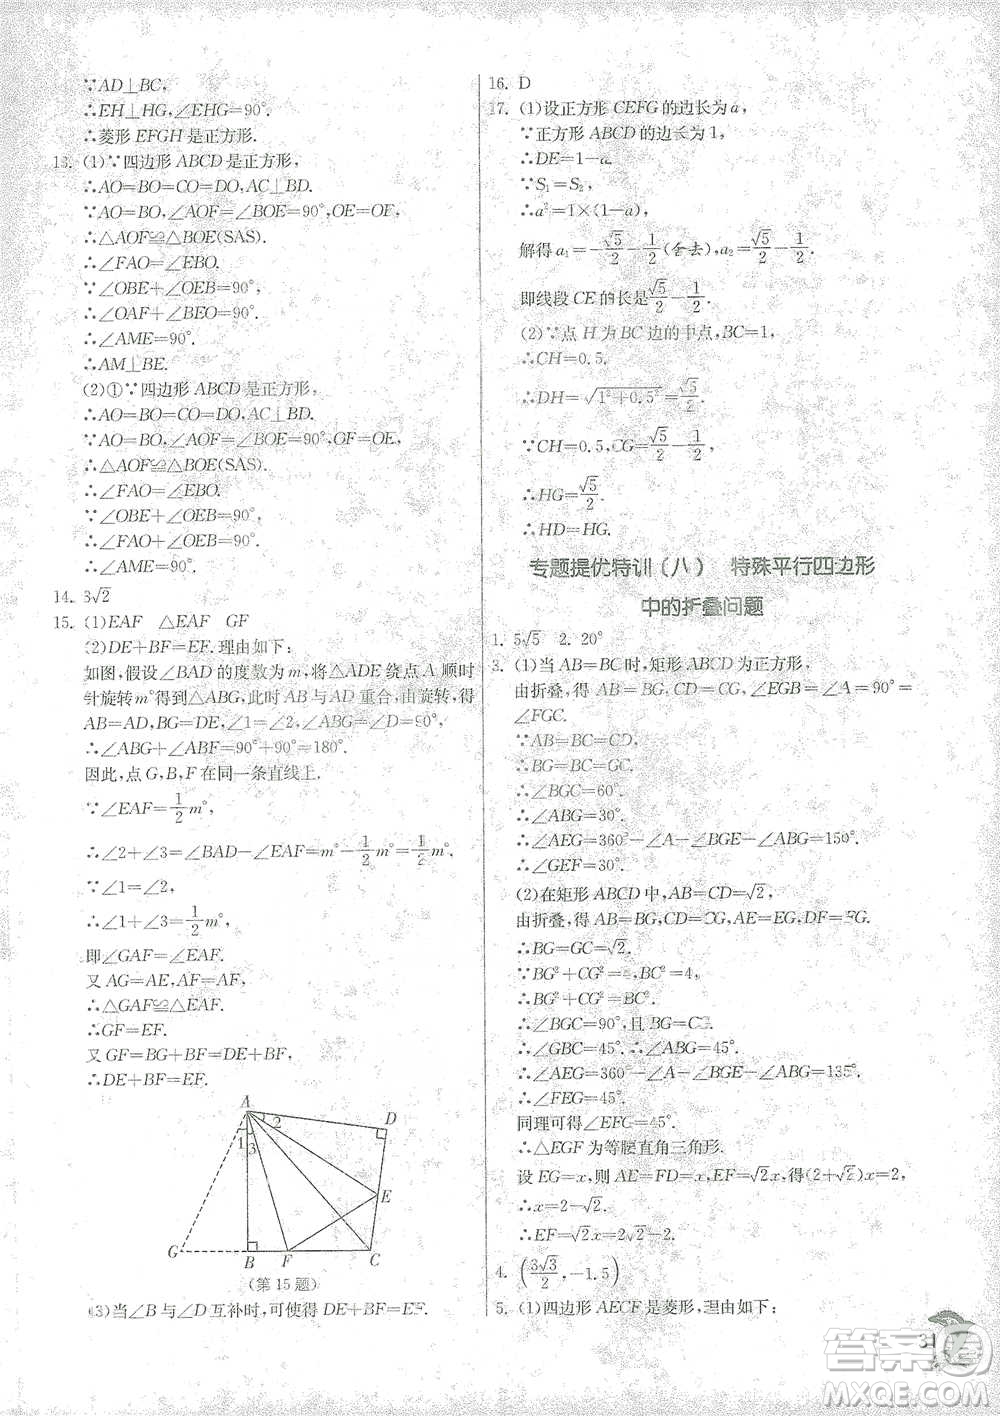 ∵AD⊥BC,
∴EH⊥HG,∠EHG=90°.
∴菱形 EFGH 是正方形.
13. (1)∵四边形 ABCD 是正方形,
∴AO=BO=CO=DO,AC⊥BD.
∵AO=BO,∠AOF=∠BOE=90°,OE=OF,
∴△AOF≌△BOE(SAS).
∴∠FAO=∠EBO.
∵∠OBE+∠OEB=90°,
∴∠OAF+∠BEO=90°.
∴∠AME=90°.
∴AM⊥BE.
(2)①∵四边形 ABCD 是正方形,
∴AO=BO=CO=DO,AC⊥BD.
∵AO=BO,∠AOF=∠BOE=90°,OF=OE,
∴△AOF≌△BOE(SAS).
∴∠FAO=∠EBO.
∵∠OBE+∠OEB=90°,
∴∠FAO+∠OEB=90°.
14. 3√2
15. (1)EAF △EAF GF
(2)DE+BF=EF.理由如下:
如图,假设∠BAD 的度数为 m,将△ADE 绕点 A 顺时
针旋转 m°得到△ABG,此时 AB 与 AD 重合,由旋转,得
AB=AD,BG=DE,∠1=∠2,∠ABG=∠D=90°,
∴∠ABG+∠ABF=90°+90°=180°.
因此,点 G,B,F 在同一条直线上.
∵∠EAF=1/2 m°,
∴∠2+∠3=∠BAD-∠EAF=m°-1/2 m°=1/2 m°.
∵∠1=∠2,
∴∠1+∠3=1/2 m°.
即∠GAF=∠EAF.
又 AG=AE,AF=AF,
∴△GAF≌△EAF.
∴GF=EF.
又 GF=BG+BF=DE+BF,
∴DE+BF=EF.
A
D
1
2
3
E
G
B
F
C
(第 15 题)
(3)当∠B 与∠D 互补时,可使得 DE+BF=EF.
16. D
17. (1)设正方形 CEFG 的边长为 a,
∵正方形 ABCD 的边长为 1,
∴DE=1-a.
∵S₁=S₂,
∴a²=1×(1-a),
解得 a₁=-√5/2-1/2(舍去),a₂=√5/2-1/2.
即线段 CE 的长是√5/2-1/2.
(2)∵点 H 为 BC 边的中点,BC=1,
∴CH=0.5.
∴DH=√(1²+0.5²)=√5/2.
∵CH=0.5,CG=√5/2-1/2,
∴HG=√5/2.
∴HD=HG.
专题提优特训(八) 特殊平行四边形
中的折叠问题
1. 5√5 2. 20°
3. (1)当 AB=BC 时,矩形 ABCD 为正方形,
由折叠,得 AB=BG,CD=CG,∠EGB=∠A=90°=
∠FGC.
∵AB=BC=CD,
∴BG=BC=GC.
∴∠BGC=60°.
∴∠ABG=30°.
∴∠AEG=360°-∠A-∠BGE-∠ABG=150°.
∴∠GEF=30°.
(2)在矩形 ABCD 中,AB=CD=√2,
由折叠,得 AB=BG,CD=CG,AE=EG,DF=FG.
∴BG=GC=√2.
∵BG²+CG²=4,BC²=4,
∴BG²+CG²=BC².
∴∠BGC=90°,且 BG=CG.
∴∠GBC=45°.∴∠ABG=45°.
∴∠AEG=360°-∠A-∠BGE-∠ABG=135°.
∴∠FEG=45°.
同理可得∠EFG=45°.
∴△EGF 为等腰直角三角形.
设 EG=x,则 AE=FD=x,EF=√2x,得(2+√2)x=2,
∴x=2-√2.
∴EF=√2x=2√2-2.
4. (3√3/2,-1.5)
5. (1)四边形 AECF 是菱形,理由如下:
31
答案圈
MXQE.COM